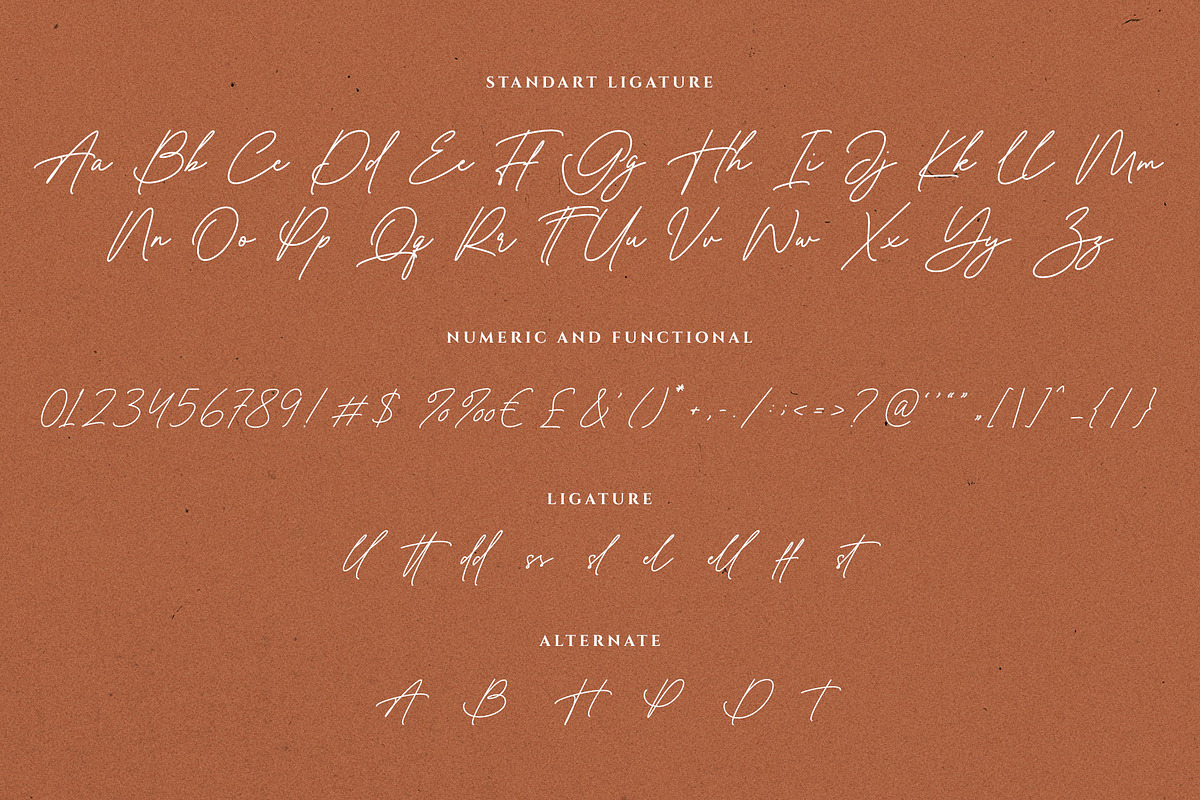 STANDART LIGATURE
Aa Bb Cc Dd Ee Ff Gg Hh Ii Jj Kk Ll Mm
Nn Oo Pp Qq Rr Tt Uu Vv Ww Xx Yy Zz
NUMERIC AND FUNCTIONAL
0123456789!#$ %‰€ £&'()*+,-./:;<=>?@‘’“”„[|]^_{|}
LIGATURE
ll tt dd ss sl el ell ff st
ALTERNATE
A B H P D T